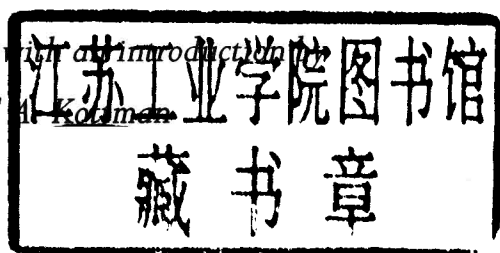 with an introduction by
A. Kotsman
江苏工业学院图书馆
藏书章